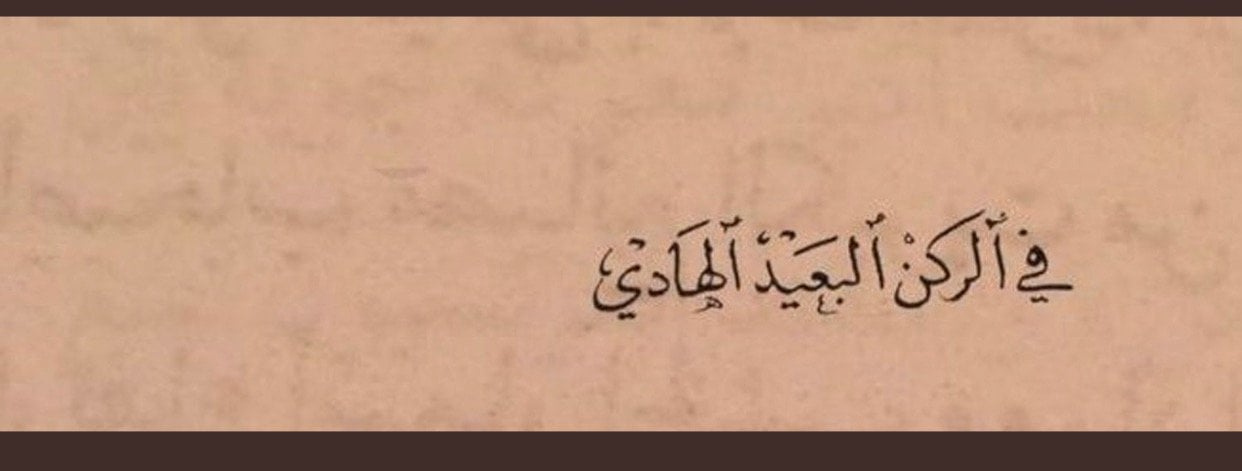 في ٱلركنْ ٱلبعيْدْ ٱلهَاديْ